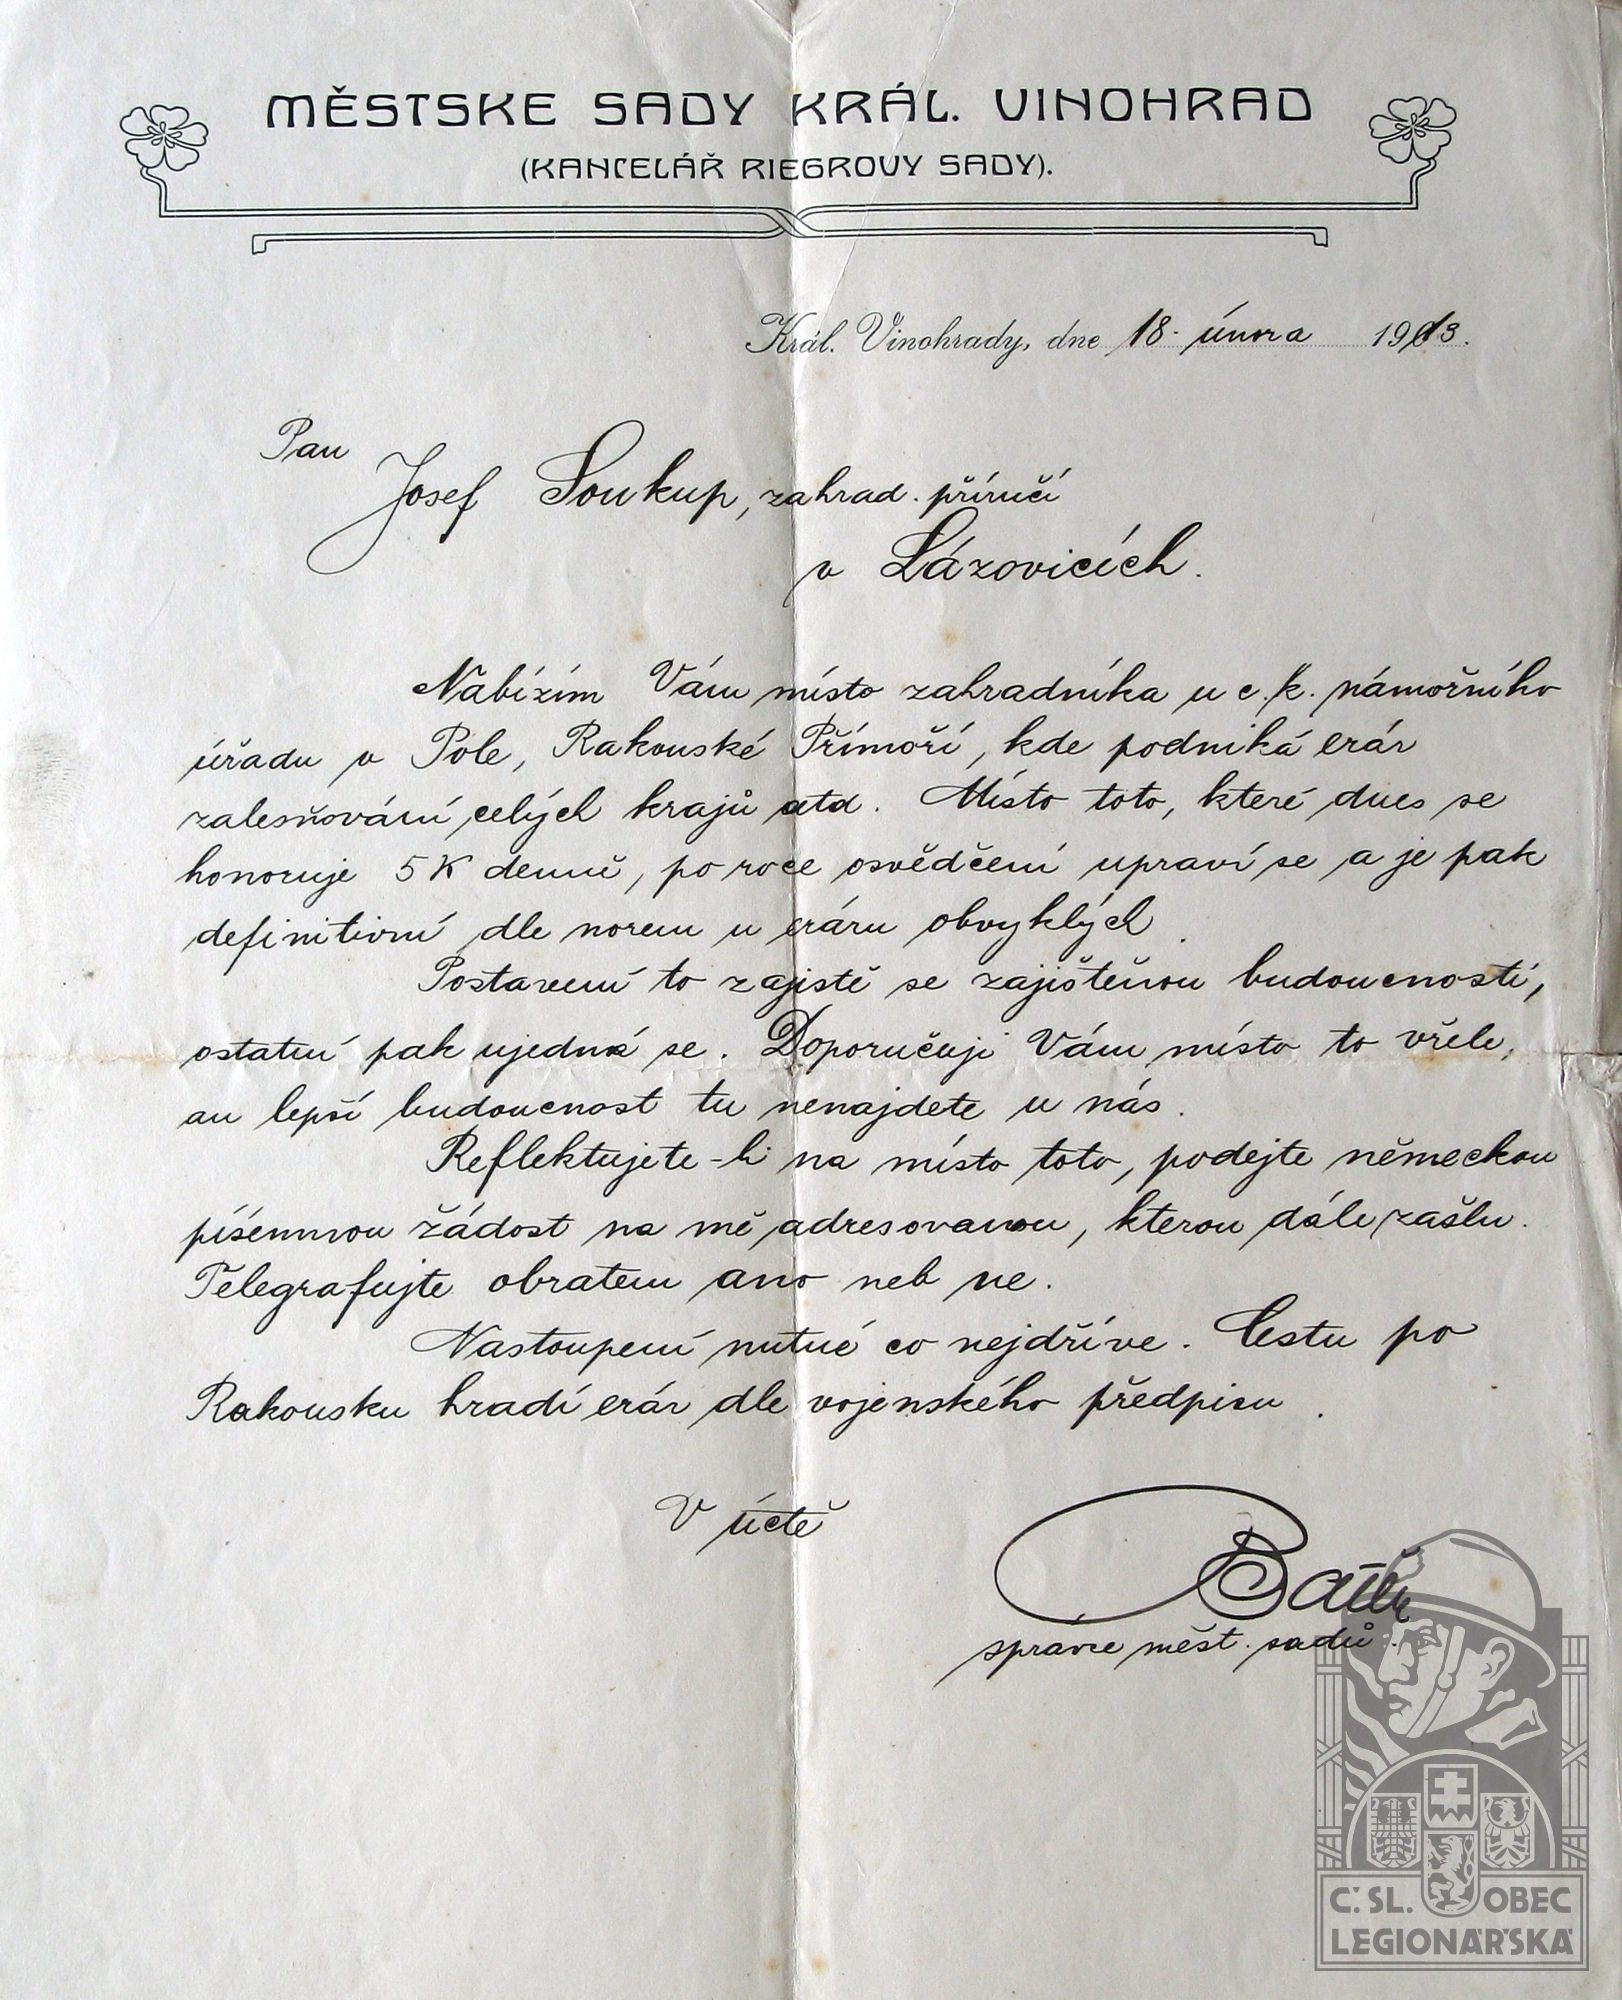 MĚSTSKE SADY KRÁL. VINOHRAD
(KANCELÁŘ RIEGROVY SADY).
Král. Vinohrady, dne 18. února 1913.
Pan
Josef Soukup, zahrad. příručí
v Lázovicích.
Nabízím Vám místo zahradníka u c. k. námořního
úřadu v Pole, Rakouské Přímoří, kde podniká erár
zalesňování celých krajů atd. Místo toto, které dnes se
honoruje 5 K denně, po roce osvědčení upraví se a je pak
definitivní dle norem u eráru obvyklých.
Postavení to zajistě se zajištěnou budoucností,
ostatní pak ujedná se. Doporučuji Vám místo to vřele,
an lepší budoucnost tu nenajdete u nás.
Reflektujete-li na místo toto, podejte německou
písemnou žádost na mě adresovanou, kterou dále zašlu.
Telegrafujte obratem ano neb ne.
Nastoupení nutné co nejdříve. Cestu po
Rakousku hradí erár dle vojenského předpisu.
V úctě
správce měst. sadů.
Č. SL. OBEC
LEGIONÁŘSKÁ